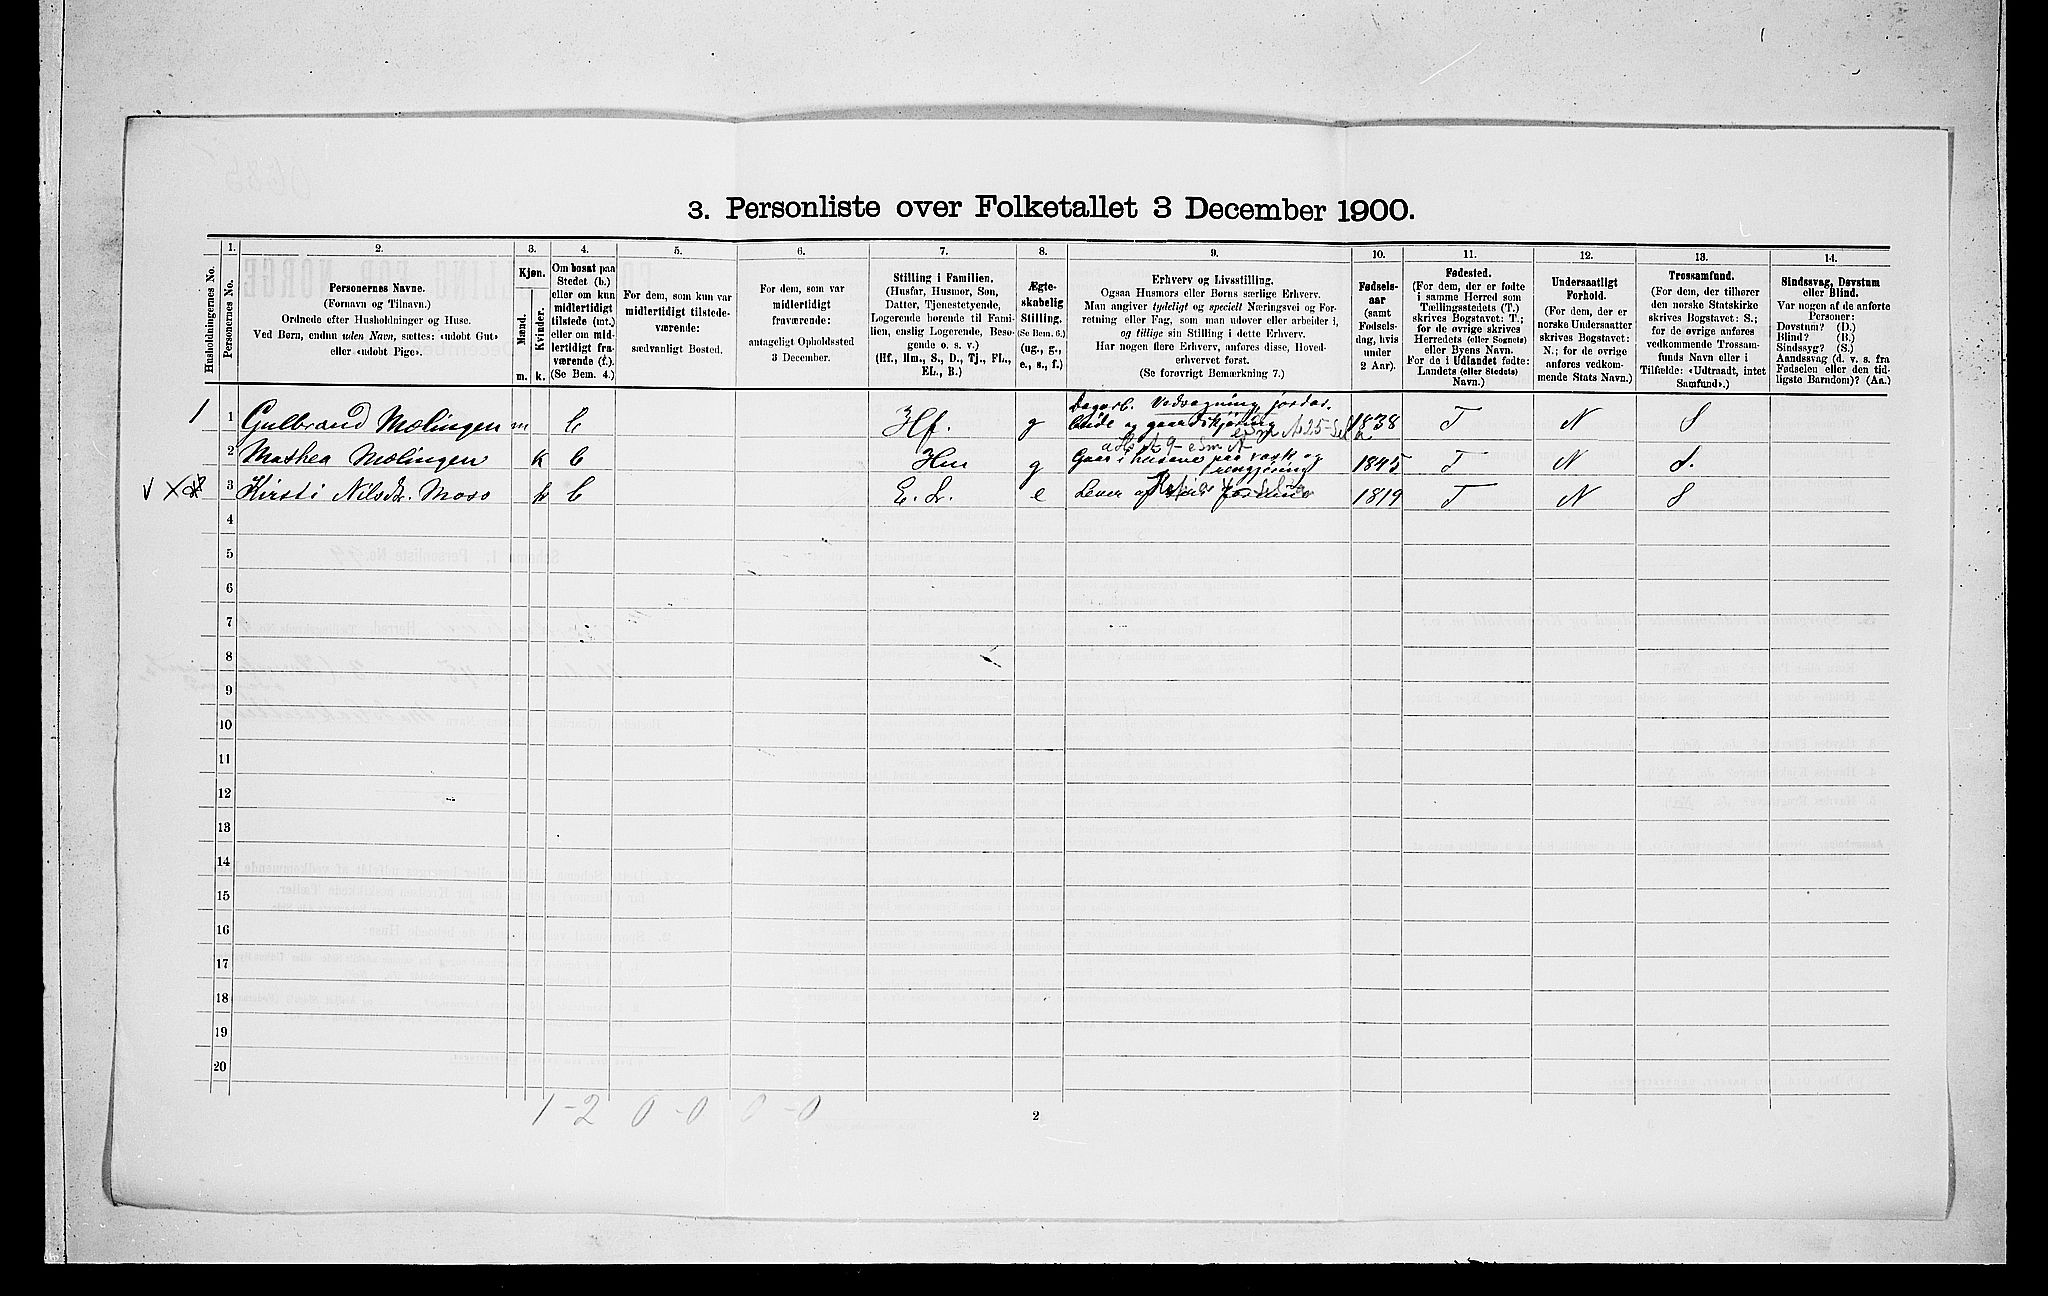 3. Personliste over Folketallet 3 December 1900.
Husholdningernes No.
1.
Personernes No.
2.
Personernes Navne.
(Fornavn og Tilnavn.)
Ordnede efter Husholdninger og Huse.
Ved Børn, endnu uden Navn, sættes: «udøbt Gut»
eller «udøbt Pige».
3.
Kjøn.
Mænd.
Kvinder.
m. k.
4.
Om bosat paa
Stedet (b.)
eller om kun
midlertidigt
tilstede (mt.)
eller om mid-
lertidigt fra-
værende (f.).
(Se Bem. 4.)
5.
For dem, som kun var
midlertidigt tilstede-
værende:
sædvanligt Bosted.
6.
For dem, som var
midlertidigt
fraværende:
antageligt Opholdssted
3 December.
7.
Stilling i Familien.
(Husfar, Husmor, Søn,
Datter, Tjenestetyende,
Logerende hørende til Fami-
lien, enslig Logerende, Besø-
gende o. s. v.)
(Hf., Hm., S., D., Tj., FL.,
EL., B.)
8.
Ægte-
skabelig
Stilling.
(Se Bem. 6.)
(ug., g.,
e., s., f.)
9.
Erhverv og Livsstilling.
Ogsaa Husmors eller Børns særlige Erhverv.
Man angiver tydeligt og specielt Næringsvei og For-
retning eller Fag, som man udøver eller arbeider i,
og tillige sin Stilling i dette Erhverv.
Har nogen flere Erhverv, anføres disse, Hoved-
erhvervet først.
(Se forøvrigt Bemærkning 7.)
10.
Fødsels-
aar
(samt
Fødsels-
dag, hvis
under
2 Aar).
11.
Fødested.
(For dem, der er fødte
i samme Herred som
Tællingsstedets (T.)
skrives Bogstavet: T.;
for de øvrige skrives
Herredets (eller Sognets)
eller Byens Navn.
For de i Udlandet fødte:
Landets (eller Stedets)
Navn.)
12.
Undersaatligt
Forhold.
(For dem, der er
norske Undersaatter
skrives Bogstavet:
N.; for de øvrige
anføres vedkom-
mende Stats Navn.)
13.
Trossamfund.
(For dem, der tilhører
den norske Statskirke
skrives Bogstavet: S.;
for de øvrige anføres
vedkommende Trossam-
funds Navn eller i
Tilfælde: «Udtraadt, intet
Samfund».)
14.
Sindssvag, Døvstum
eller Blind.
Var nogen af de anførte
Personer:
Døvstum? (D.)
Blind? (B.)
Sindssyg? (S.)
Aandssvag (d. v. s. fra
Fødselen eller den tid-
ligste Barndom)? (Aa.)
1 1 Gulbrand Mælingen m b Hf. g Dagarb. Vedvagning, jordar-
beide og gaardskjøring 1838 T N S
2 Mathea Mælingen k b Hm g Gaar i husene paa vask og
rengjøring 1845 T N S.
3 Kirsti Nilsdr. Moso k b E. L. e Lever af 1819 T N S
4
5
6
7
8
9
10
11
12
13
14
15
16
17
18
19
20
1 - 2 0 - 0 0 - 0
2